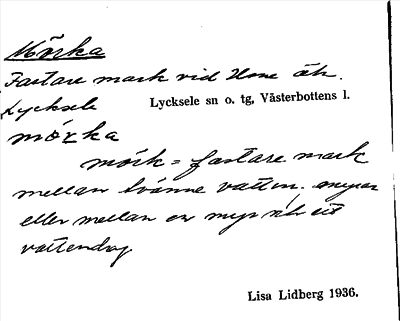 Mörka
Fastare mark vid Ume älv.
Lycksele
Lycksele sn o. tg, Västerbottens l.
mörka
mörk = fastare mark
mellan tvänne vatten. myrar
eller mellan en myr och ett
vattendrag
Lisa Lidberg 1936.